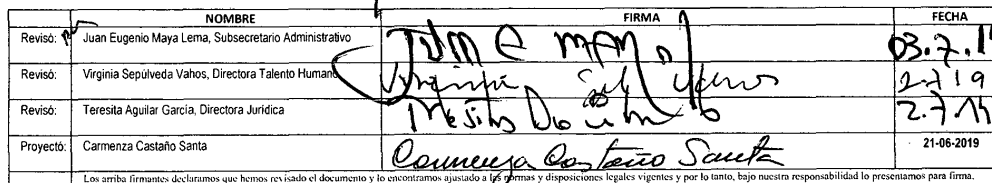 NOMBRE FIRMA FECHA
Revisó: Juan Eugenio Maya Lema, Subsecretario Administrativo
Revisó: Virginia Sepúlveda Vahos, Directora Talento Humano Virginia 2-7-19
Revisó: Teresita Aguilar García, Directora Jurídica
Proyectó: Carmenza Castaño Santa Carmenza Castaño Santa 21-06-2019
Los arriba firmantes declaramos que hemos revisado el documento y lo encontramos ajustado a las normas y disposiciones legales vigentes y por lo tanto, bajo nuestra responsabilidad lo presentamos para firma.